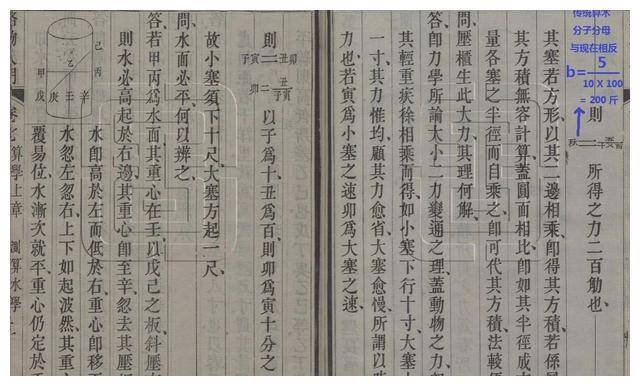 传统算术
分子分母
与现在相反
b= 5
10 X 100
= 200 斤
則 所得之力二百觔也、
其塞若方形、以其二邊相乘、即得其方積、若係
其方積無容計算、蓋圓面相比、即如其半徑成
量各塞之半徑而自乘之、即可代其方積、法較
問壓櫃生此大力、其理何解、
答即力學所論大小二力變通之理、蓋動物之力、
其輕重疾徐相乘而得、如小塞下行十寸、大塞
一寸、其力惟均、顧其力愈省、大塞愈慢、所謂以
力也、若寅為小塞之速、卯為大塞之速、
則 以子為十、丑為百、則卯為寅十分之
故小塞須下十尺、大塞方起一尺、
問水面必平、何以辨之、
答若甲丙為水面、其重心在壬、以戊己之板斜壓
則水必高起於右邊、其重心即至辛、忽去其壓
水即高於左而低於右、重心即移
水忽左忽右、上下如起波然、其重
覆易位、水漸次就平、重心仍定於
己
丙
乙
甲
戊庚壬辛
物入門
算學上章 測算水學